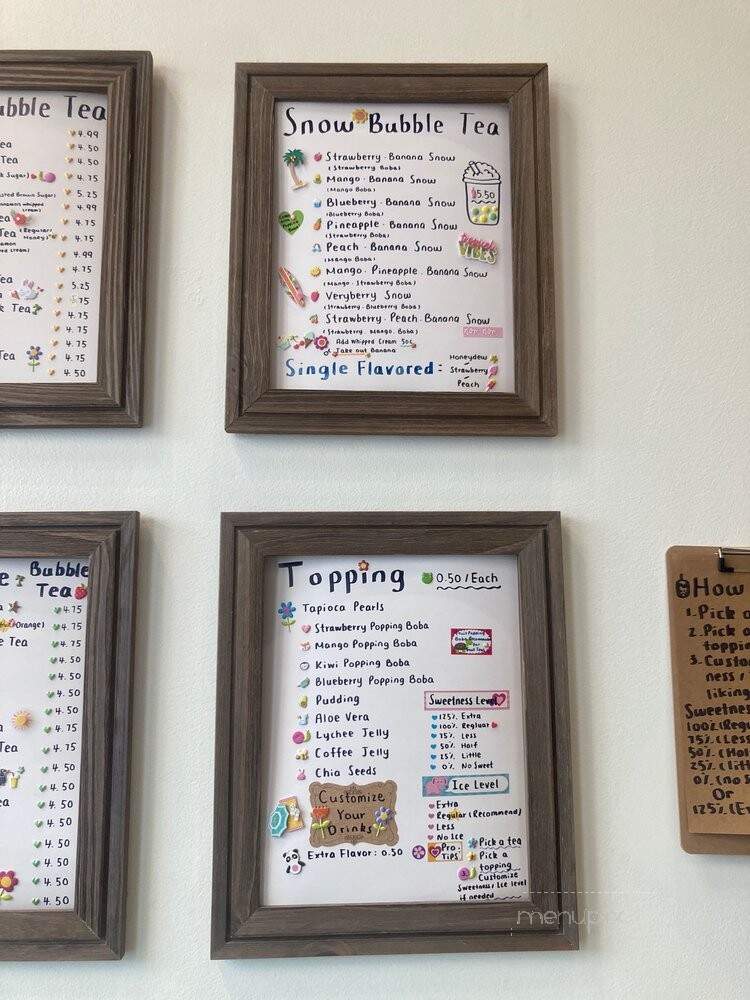 ubble Tea
4.99
Tea 4.50
Tea 4.50
k Sugar) 4.75
asted Brown Sugar) 5.25
4.99
ea (Regular/ 4.75
Tea Honey) 4.75
4.99
4.75
Tea 5.25
4.75
k Tea 4.75
4.75
4.75
Tea 4.75
4.50
Snow Bubble Tea
Strawberry · Banana Snow
(Strawberry Boba)
Mango · Banana Snow
(Mango Boba)
Blueberry · Banana Snow
(Blueberry Boba)
Pineapple · Banana Snow
(Strawberry Boba)
Peach · Banana Snow
(Mango Boba)
Mango · Pineapple · Banana Snow
(Mango · Strawberry Boba)
Veryberry Snow
(Strawberry · Blueberry Boba)
Strawberry · Peach · Banana Snow
(Strawberry · Mango · Boba)
Add Whipped Cream 50¢
Take out Banana
$5.50
VIBES
Single Flavored:
Honeydew
Strawberry
Peach
e Bubble
Tea
4.75
Orange) 4.75
e Tea 4.75
4.50
4.50
4.50
4.75
Tea 4.75
4.50
4.50
ea 4.50
4.50
4.50
4.50
4.50
4.50
Topping 0.50/Each
Tapioca Pearls
Strawberry Popping Boba
Mango Popping Boba
Kiwi Popping Boba
Blueberry Popping Boba
Pudding
Aloe Vera
Lychee Jelly
Coffee Jelly
Chia Seeds
Customize
Your
Drinks
Extra Flavor: 0.50
Sweetness Level
125% Extra
100% Regluar
75% Less
50% Half
25% Little
0% No Sweet
Ice Level
Extra
Regular (Recommend)
Less
No Ice
Pro
Tips:
Pick a tea
Pick a
topping
Customize
Sweetness/Ice level
if needed
How
1. Pick a
2. Pick a
toppin
3. Custo
ness/
liking
Sweetne
100% (Regu
75% (Less
50% (Ha
25% (litt
0% (no s
Or
125% (Ex